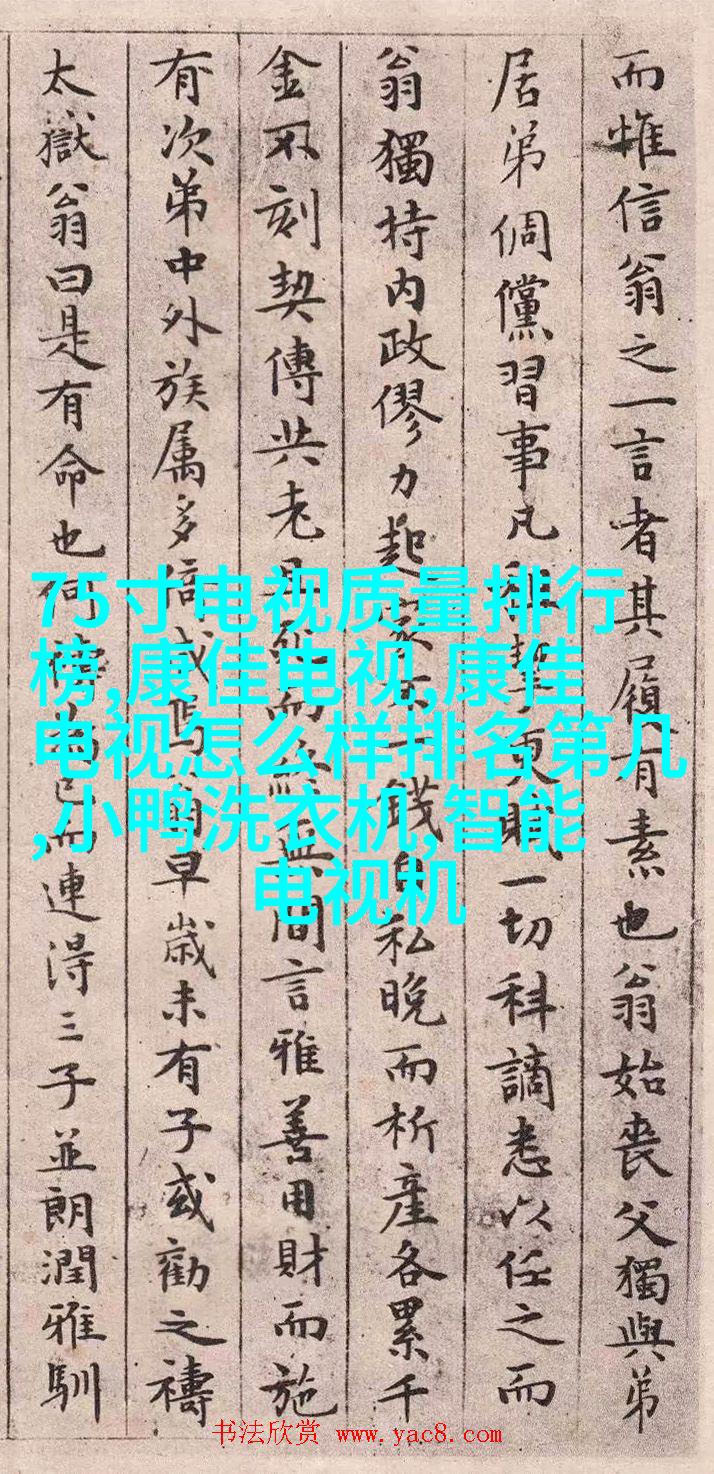 而惟信翁之一言者其履有素也翁始喪父獨與弟
居弟倜儻習事凡更賦一切科謫悉以任之而
翁獨持内政僇力起家一錢自私晚而析産各累千
金不刻契傳共老且死而終無間言雅善用財而施
有次第中外族属多翁早歳未有子或勸之禱
太獄翁曰是有命也何禱為已而連得三子並朗潤雅馴
75寸电视质量排行
榜,康佳电视,康佳
电视怎么样排名第几
,小鸭洗衣机,智能
电视机
书法欣赏 www.yac8.com